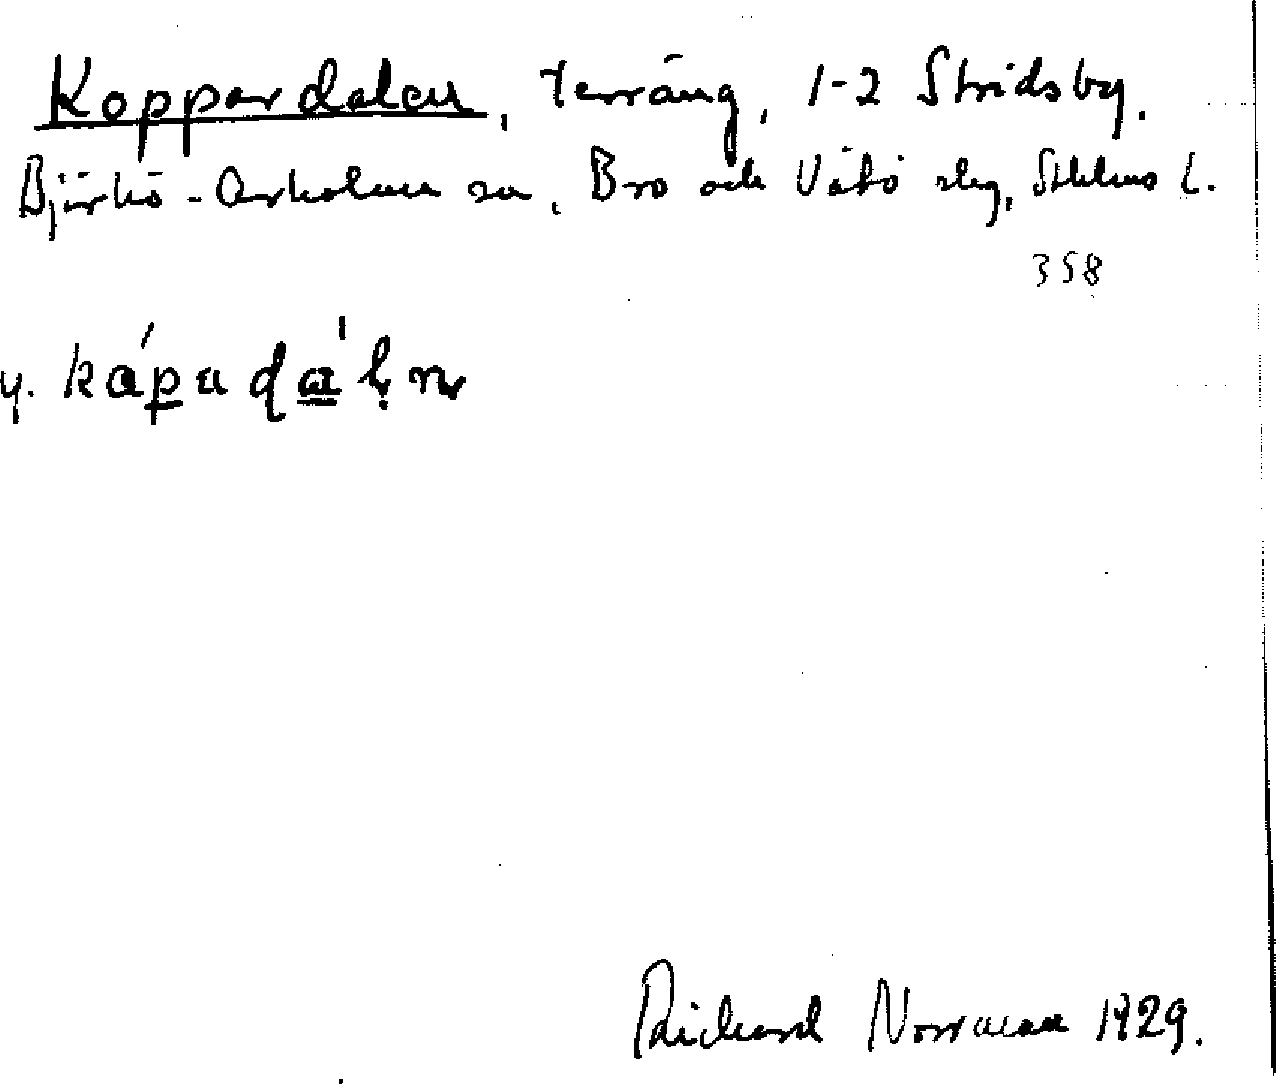 Koppardalen, terräng, 1-2 Stridsby.
Björkö-Arholma sn, Bro och Vätö slg, Sthlms l.
358
y. kápa dà'ln
Richard Norrman 1929.